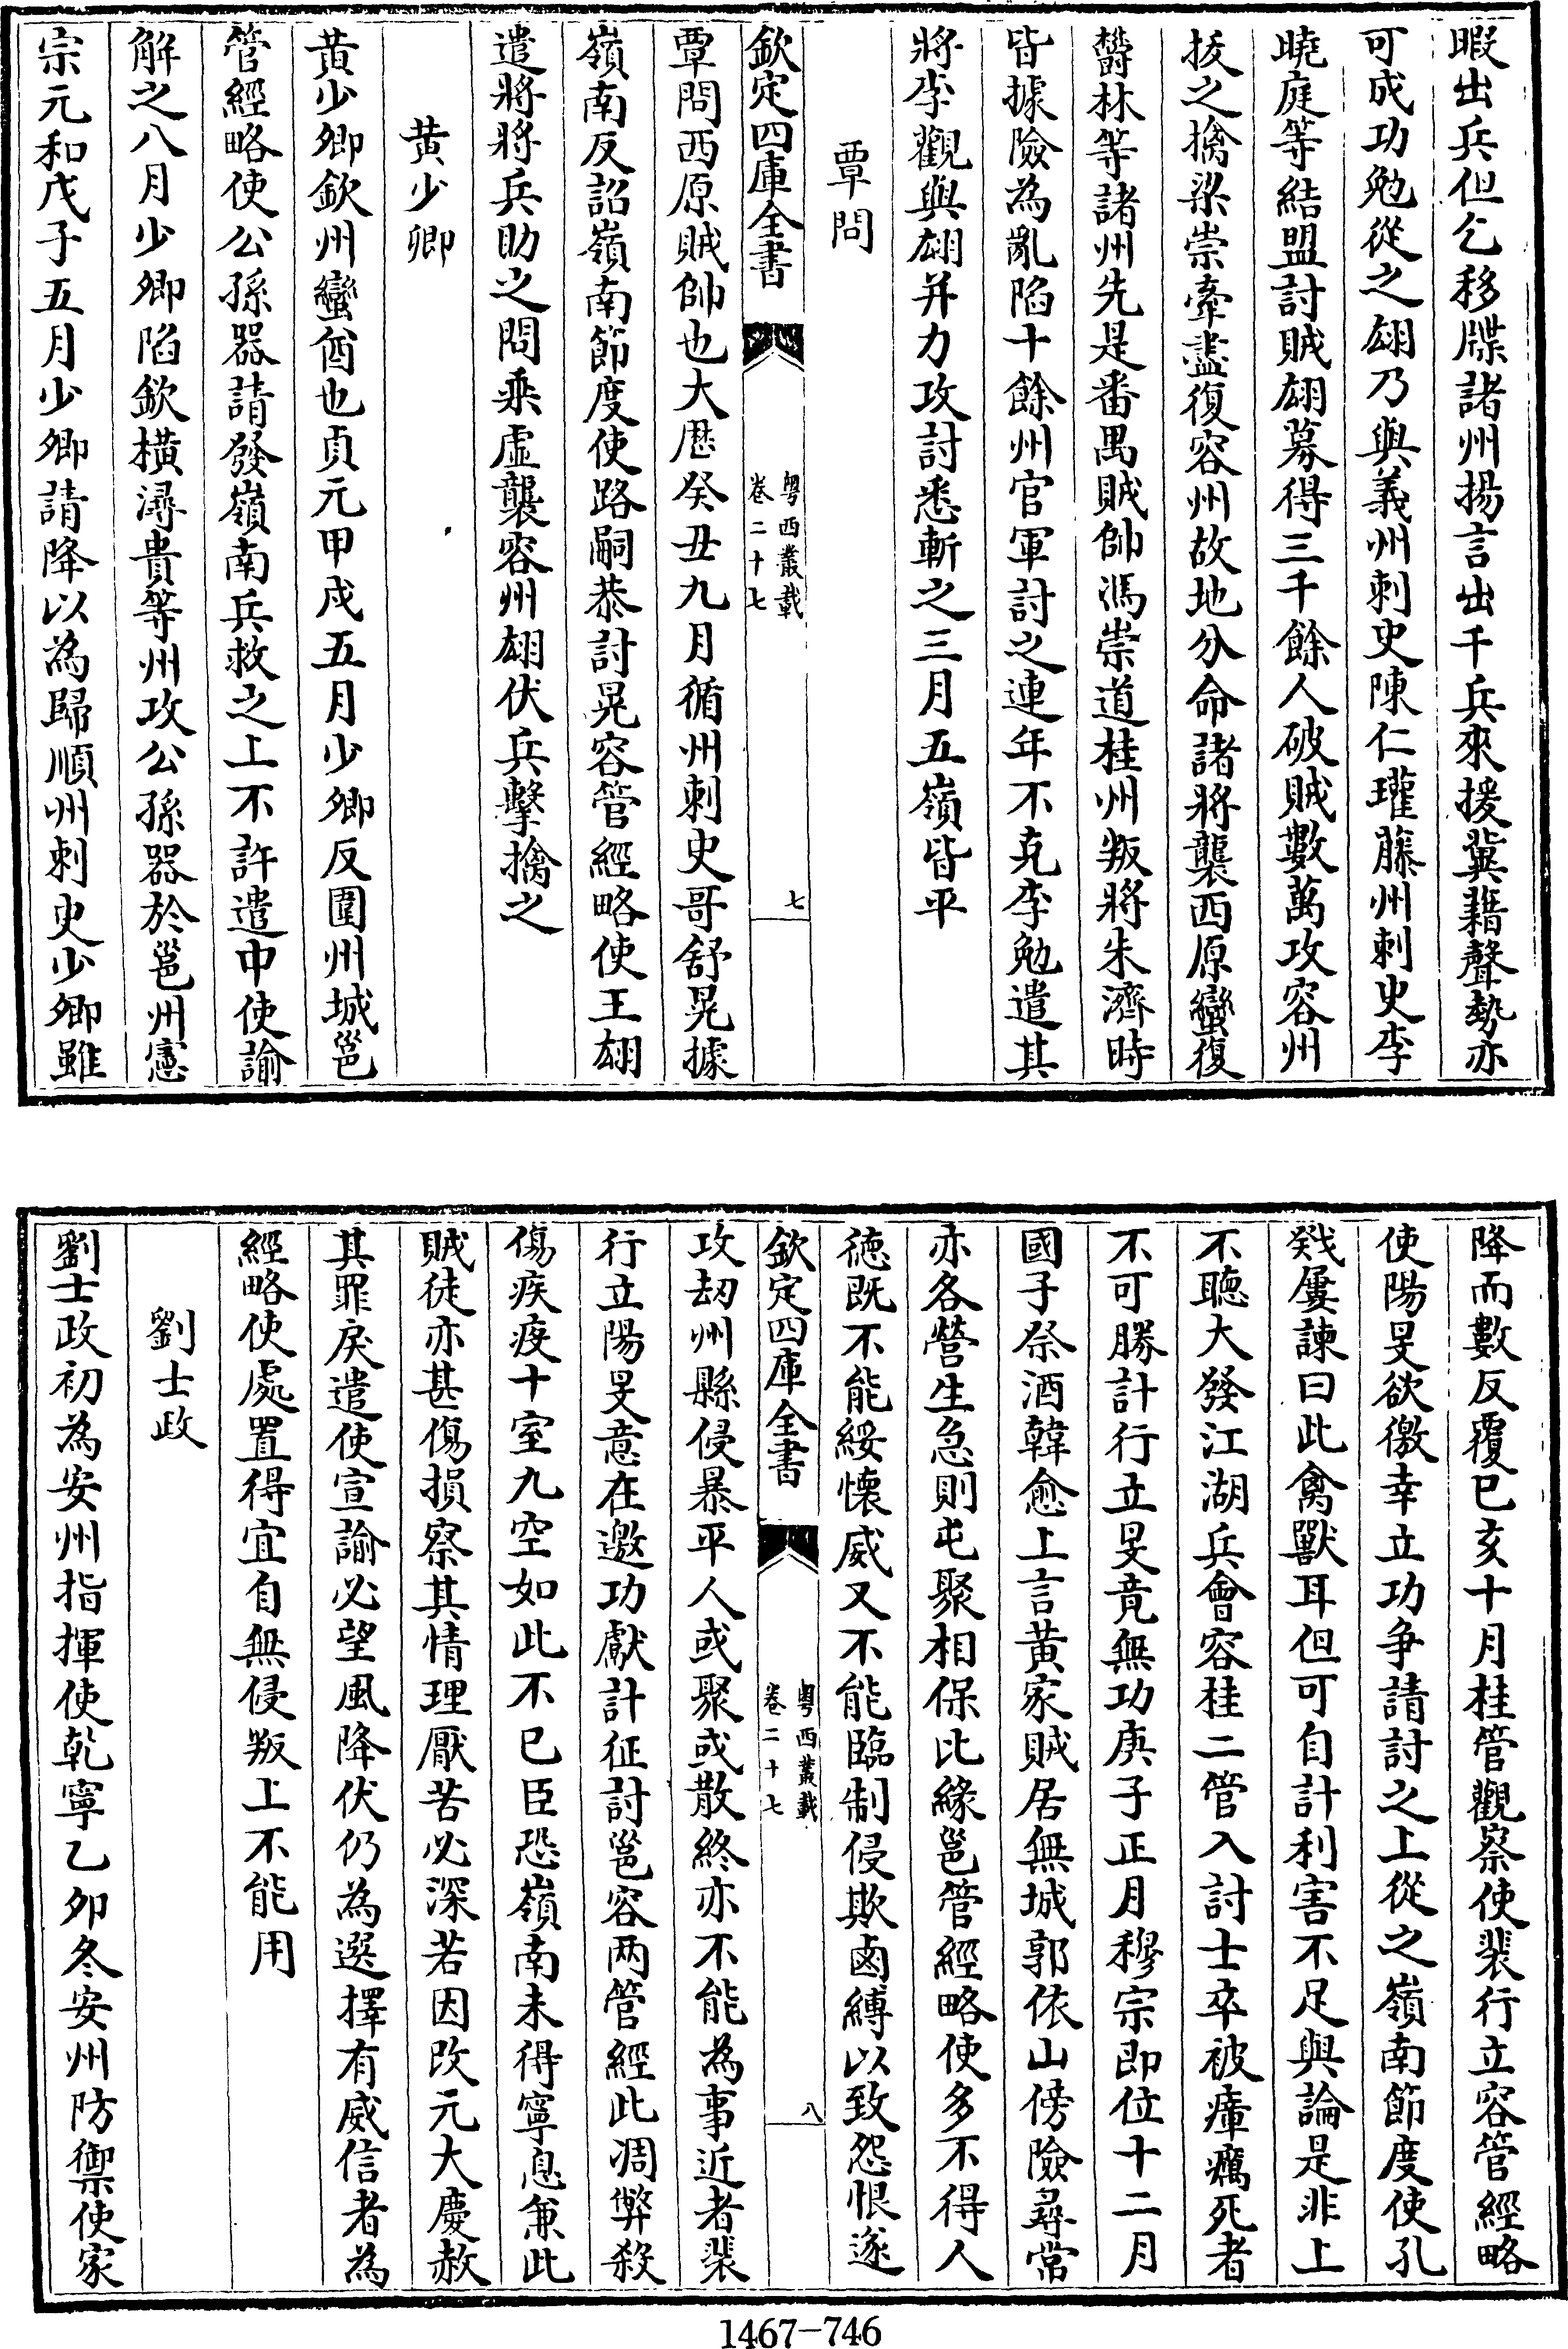 暇出兵但乞移牒諸州揚言出千兵來援冀藉聲勢亦
可成功勉從之翃乃與義州刺史陳仁璀藤州刺史李
曉庭等結盟討賊翃募得三千餘人破賊數萬攻容州
拔之擒梁崇牽盡復容州故地分命諸將襲西原蠻復
欝林等諸州先是番禺賊帥馮崇道桂州叛將朱濟時
皆據險為亂陷十餘州官軍討之連年不克李勉遣其
將李觀與翃并力攻討悉斬之三月五嶺皆平
覃問
欽定四庫全書
粤西叢載
卷二十七
七
覃問西原賊帥也大厯癸丑九月循州刺史哥舒晃據
嶺南反詔嶺南節度使路嗣恭討晃容管經略使王翃
遣將將兵助之問乘虛襲容州翃伏兵擊擒之
黄少卿
黄少卿欽州蠻酋也貞元甲戌五月少卿反圍州城邕
管經略使公孫器請發嶺南兵救之上不許遣中使諭
解之八月少卿陷欽橫潯貴等州攻公孫器於邕州憲
宗元和戊子五月少卿請降以為歸順州刺史少卿雖
降而數反覆已亥十月桂管觀察使裴行立容管經略
使陽旻欲徼幸立功争請討之上從之嶺南節度使孔
戣屢諫曰此禽獸耳但可自計利害不足與論是非上
不聽大發江湖兵會容桂二管入討士卒被瘴癘死者
不可勝計行立旻竟無功庚子正月穆宗即位十二月
國子祭酒韓愈上言黄家賊居無城郭依山傍險尋常
亦各營生急則屯聚相保比緣邕管經略使多不得人
德既不能綏懷威又不能臨制侵欺鹵縛以致怨恨遂
欽定四庫全書
粤西叢載
卷二十七
八
攻刼州縣侵暴平人或聚或散終亦不能為事近者裴
行立陽旻意在邀功獻計征討邕容两管經此凋弊殺
傷疾疫十室九空如此不已臣恐嶺南未得寧息兼此
賊徒亦甚傷損察其情理厭苦必深若因改元大慶赦
其罪戾遣使宣諭必望風降伏仍為選擇有威信者為
經略使處置得宜自無侵叛上不能用
劉士政
劉士政初為安州指揮使乾寧乙卯冬安州防禦使家
1467-746